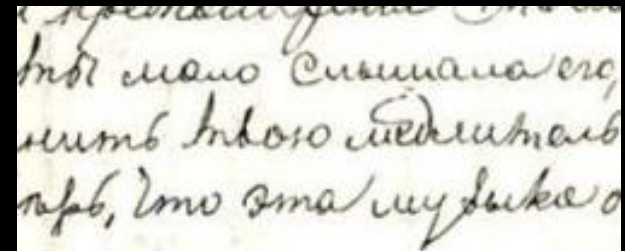 ты мало слышала его,
нить твою медлитель
что эта музыка о